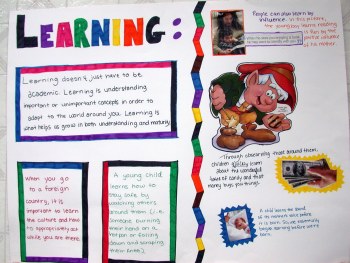 LEARNING:
Learning doesn't just have to be
academic. Learning is understanding
important or unimportant concepts in order to
adapt to the world around you. Learning is
what helps us grow in both understanding and maturity.
When you go
to a foreign
country, it is
important to learn
the culture and how
to appropriately act
while you are there.
A young child
learns how to
stay safe by
watching others
around them (i.e.
someone burning
their hand on a
or falling
down and scraping
their knee).
People can also learn by
influence. In this picture,
the young boy learns reading
is fun by the
influence
of his mother.
Through observing those around them,
children quickly learn
about the wonderful
taste of candy and that
money buys you things.
A child learns the sound
of its mother's voice before
it is born. So, we essentially
begin learning before we're
born.